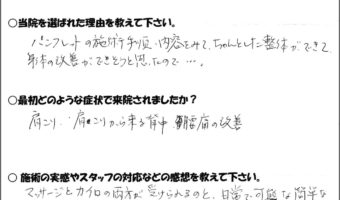 ○当院を選ばれた理由を教えて下さい。
パンフレットの施術手順・内容をみて、ちゃんとした整体ができて、
身体の改善ができそうと思たので…。
○最初どのような症状で来院されましたか？
肩こり、肩こりから来る背中 腰痛の改善
○施術の実感やスタッフの対応などの感想を教えて下さい。
マッサージとカイロの両方が受けられるのと、日常で可能な簡単な